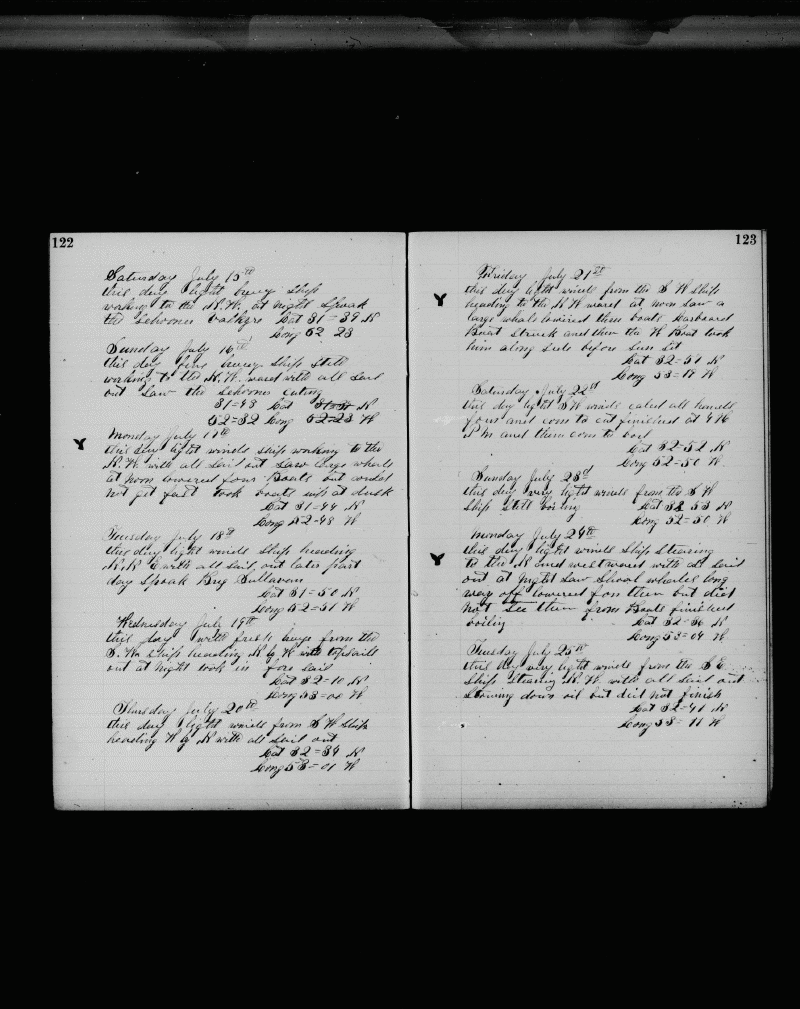 122
Saturday July 15th
this day light breeze Ship
working to the N. W. at night Spoak
the Schooner Lat 31 = 39 N
Long 52 23
Sunday July 16th
this day fine breeze Ship Still
working to the N. W. ward with all Sail
out Saw the Schooner cuting
31=43 Lat
52=32 Long W
Monday July 17th
this day light winds Ship working to the
N. W. with all Sail out Saw large whale
at Noon lowered four Boats but could
not get fast took boats up at dusk
Lat 31=44 N
Long 52-48 W
Tuesday July 18th
this day light winds Ship heading
N. N. E with all Sail out later part
day Spoak Brig Sullavan
Lat 31=50 N
Long 52=51 W
Wednesday July 19th
this day with fresh breeze from the
S. W. Ship heading N by W with topsails
out at Night took in fore Sail
Lat 32=10 N
Long 53=00 W
Thursday July 20th
this day light winds from S W Ship
heading W by N with all Sail out
Lat 32=34 N
Long 53=01 W
123
Friday July 21st
this day light winds from the S W Ship
heading to the N W ward at noon Saw a
large whale lowered three boats Larboard
Boat Struck and then the W Boat took
him along Side before Sun Set
Lat 32=51 N
Long 53=18 W
Saturday July 22d
this day light S W winds called all hands
four and com to cut finished at 4
P M and then com to boil
Lat 32=52 N
Long 52=50 W
Sunday July 23d
this day very light winds from the S W
Ship Still boiling Lat 32 53 N
Long 52=50 W
Monday July 24th
this day light winds Ship Stearing
to the N and west ward with all Sail
out at Night Saw Shool whales long
way off lowered for them but did
not See them from Boats finished
boiling Lat 32=36 N
Long 53=04 W
Tuesday July 25th
this day very light winds from the S E
Ship Stearing N. W. with all Sail out
Stowing down oil but did not finish
Lat 32=41 N
Long 53=11 W